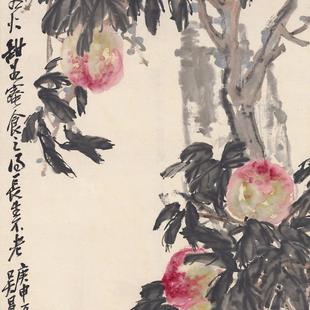 如火甜若蜜食之得長生不老
庚申
吳昌